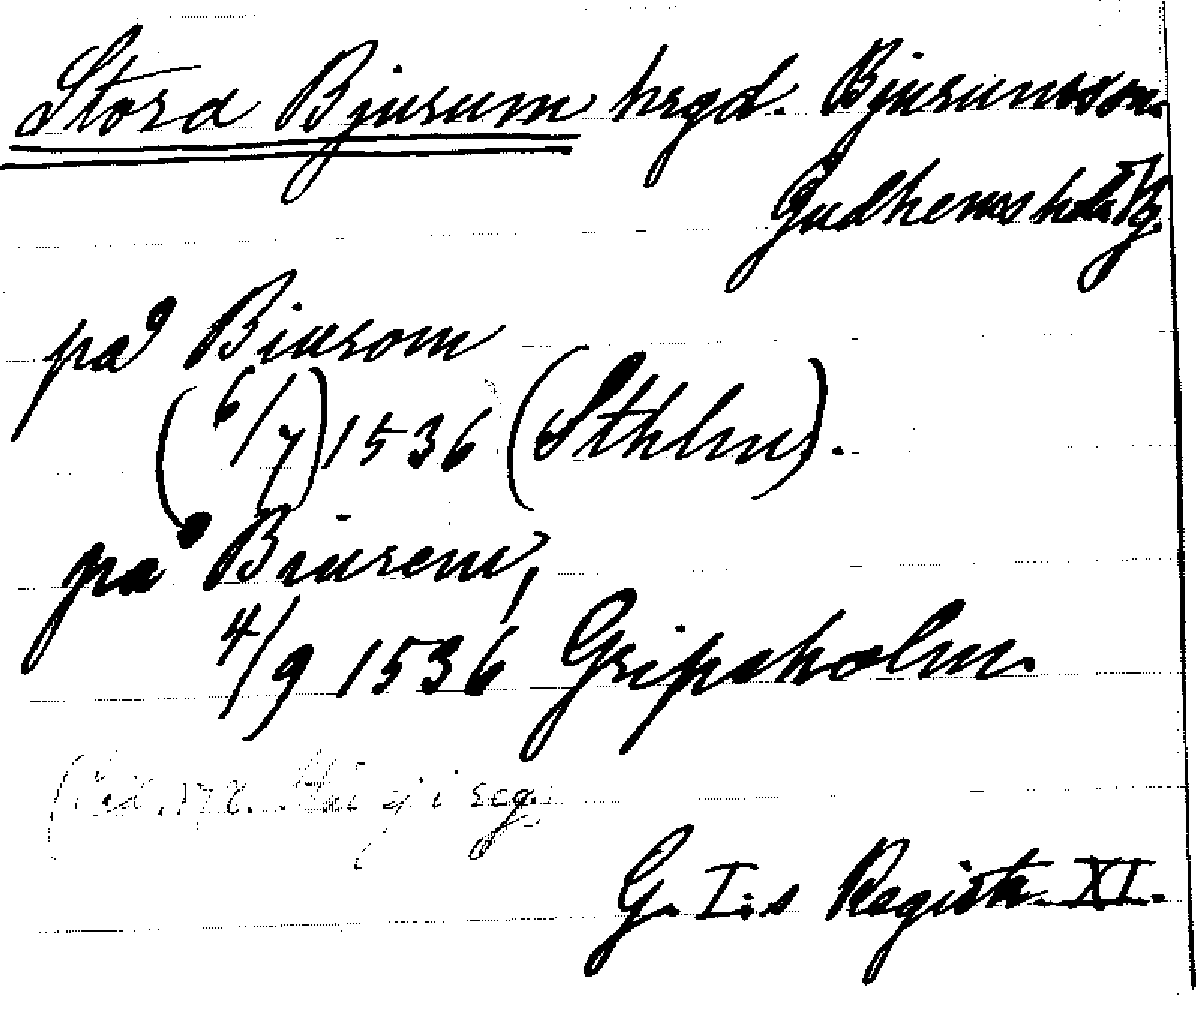 Stora Bjurum hrgd. Bjurums sn.
Gudhems hd. Vg.
på Biurom
(6/7) 1536 (Sthlm).
på Biurem,
4/9 1536 Gripsholm.
ej i reg.
G. I:s Registr. XI.